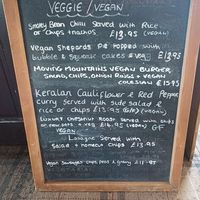 VEGGIE / VEGAN
5 Bean Chilli Served with Rice
or Chips + nachos £13.95 (VEGAN)
Vegan Shepherds Pie topped with
bubble & squeak cakes & veg £13.95
MOVING MOUNTAINS VEGAN BURGER
SALAD, CHIPS, ONION RINGS + VEGAN
COLESLAW £15.95
Keralan Cauliflower & Red Pepper
curry served with side salad &
rice or chips £13.95 (GF) (VEGAN)
LUXURY CHESTNUT ROAST SERVED with CHIPS
or new pots + veg £14.95 (VEGAN) GF
VEGAN
Lasagne Served with
Salad + homemade Chips £13.95
Vegan Sausages chips peas & gravy £13.95